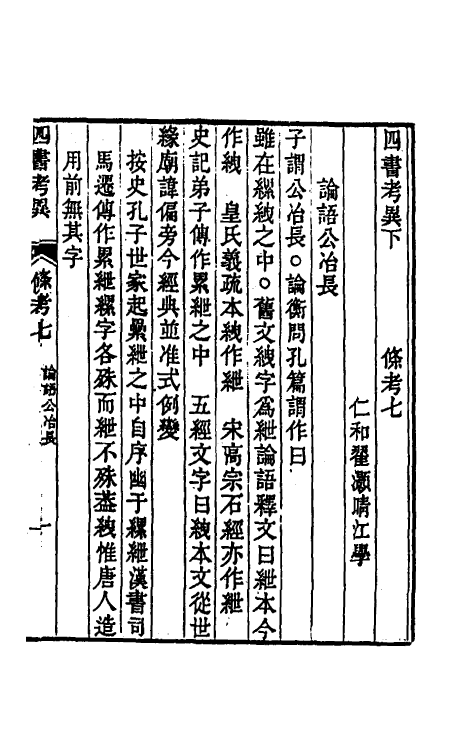 四書考異下　條考七
仁和翟灝晴江學
論語公冶長
子謂公冶長○論衡問孔篇謂作曰
雖在縲絏之中○舊文絏字爲紲論語釋文曰紲本今
作絏　皇氏義疏本絏作紲　宋高宗石經亦作紲
史記弟子傳作累紲之中　五經文字曰絏本文從世
緣廟諱偏旁今經典並准式例變
按史孔子世家起纍紲之中自序幽于縲紲漢書司
馬遷傳作累紲縲字各殊而紲不殊葢絏惟唐人造
用前無其字
四書考異　條考七　論語公冶長　一